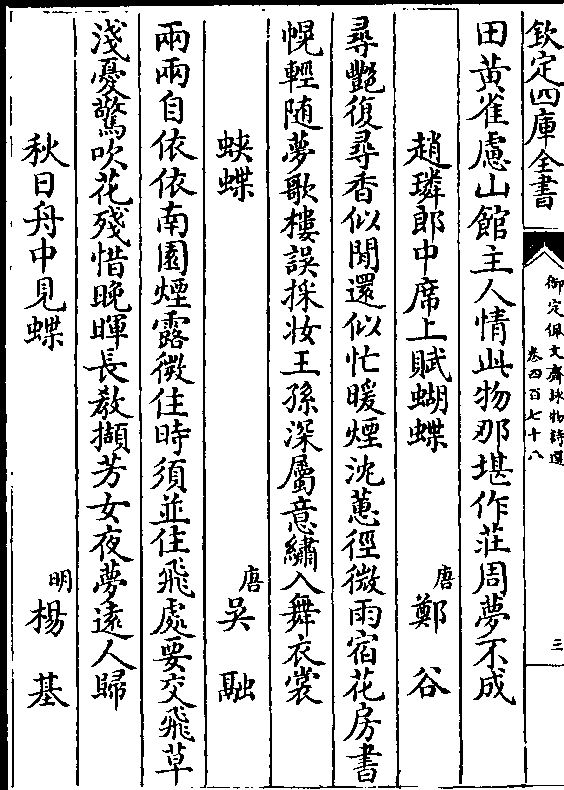 欽定四庫全書
御定佩文齋詠物詩選
卷四百七十八
三
田黃雀慮山館主人情此物那堪作莊周夢不成
趙璘郎中席上賦蝴蝶
唐
鄭谷
尋艷復尋香似閒還似忙暖煙沈蕙徑微雨宿花房書
幌輕隨夢歌樓誤採妝王孫深屬意繡入舞衣裳
蛺蝶
唐
吳融
兩兩自依依南園煙露微住時須並住飛處要交飛草
淺憂驚吹花殘惜晚暉長教擷芳女夜夢遠人歸
秋日舟中見蝶
明
楊基